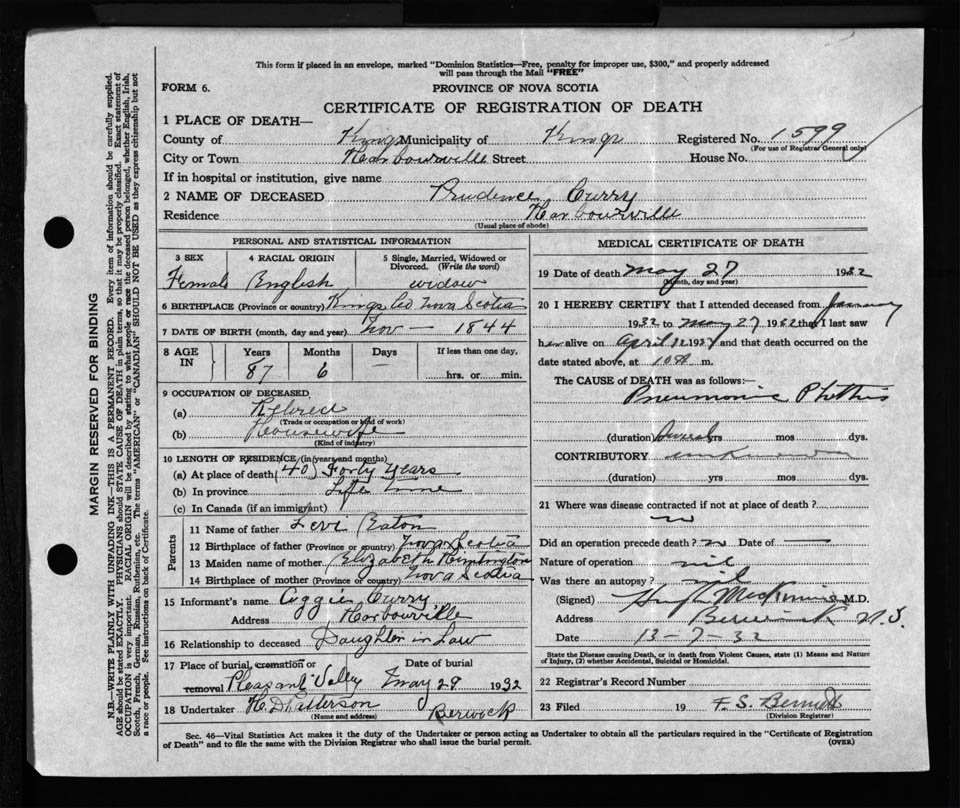 This form if placed in an envelope, marked "Dominion Statistics—Free, penalty for improper use, $300," and properly addressed
will pass through the Mail "FREE"
FORM 6.
PROVINCE OF NOVA SCOTIA
CERTIFICATE OF REGISTRATION OF DEATH
1 PLACE OF DEATH—
County of Kings Municipality of Kings Registered No. 1599
(For use of Registrar General only)
City or Town Harbourville Street House No.
If in hospital or institution, give name
2 NAME OF DECEASED Prudence Curry
Residence Harbourville
(Usual place of abode)
PERSONAL AND STATISTICAL INFORMATION
3 SEX 4 RACIAL ORIGIN 5 Single, Married, Widowed or
Divorced. (Write the word)
Female English widow
6 BIRTHPLACE (Province or country) Kings Co Nova Scotia
7 DATE OF BIRTH (month, day and year) Nov — 1844
8 AGE IN Years Months Days If less than one day,
87 6 — hrs. or min.
9 OCCUPATION OF DECEASED
(a) Retired
(Trade or occupation or kind of work)
(b) Housewife
(Kind of industry)
10 LENGTH OF RESIDENCE (in years and months)
(a) At place of death (40) Forty Years
(b) In province Life time
(c) In Canada (if an immigrant)
Parents
11 Name of father Levi Eaton
12 Birthplace of father (Province or country) Nova Scotia
13 Maiden name of mother Elizabeth Huntington
14 Birthplace of mother (Province or country) Nova Scotia
15 Informant's name Aggie Curry
Address Harbourville
16 Relationship to deceased Daughter in Law
17 Place of burial, cremation or Date of burial
removal Pleasant Valley May 29 1932
18 Undertaker H D Patterson Berwick
(Name and address)
MEDICAL CERTIFICATE OF DEATH
19 Date of death May 27 1932
(Month, day and year)
20 I HEREBY CERTIFY that I attended deceased from January
1932 to May 27 1932 that I last saw
her alive on April and that death occurred on the
date stated above, at m.
The CAUSE OF DEATH was as follows:—
Pneumonic Phthisis
(duration) Several yrs mos dys.
CONTRIBUTORY unknown
(duration) yrs mos dys.
21 Where was disease contracted if not at place of death?
no
Did an operation precede death? no Date of —
Nature of operation nil
Was there an autopsy? nil
(Signed) M.D.
Address Berwick N.S.
Date 13-7-32
State the Disease causing Death, or in death from Violent Causes, state (1) Means and Nature
of Injury, (2) whether Accidental, Suicidal or Homicidal.
22 Registrar's Record Number
23 Filed 19 F. S.
(Division Registrar)
Sec. 46—Vital Statistics Act makes it the duty of the Undertaker or person acting as Undertaker to obtain all the particulars required in the "Certificate of Registration
of Death" and to file the same with the Division Registrar who shall issue the burial permit. (OVER)
MARGIN RESERVED FOR BINDING
N.B.—WRITE PLAINLY WITH UNFADING INK—THIS IS A PERMANENT RECORD. Every item of information should be carefully supplied.
AGE should be stated EXACTLY. PHYSICIANS should STATE CAUSE OF DEATH in plain terms, so that it may be properly classified. Exact statement of
OCCUPATION is very important. RACIAL ORIGIN will be described by stating to what people or race the deceased person belonged, whether English, Irish,
Scotch, French, German, Russian, Ruthenian, etc. The terms "AMERICAN" or "CANADIAN" SHOULD NOT BE USED as they express citizenship but not
a race or people. See instructions on back of Certificate.